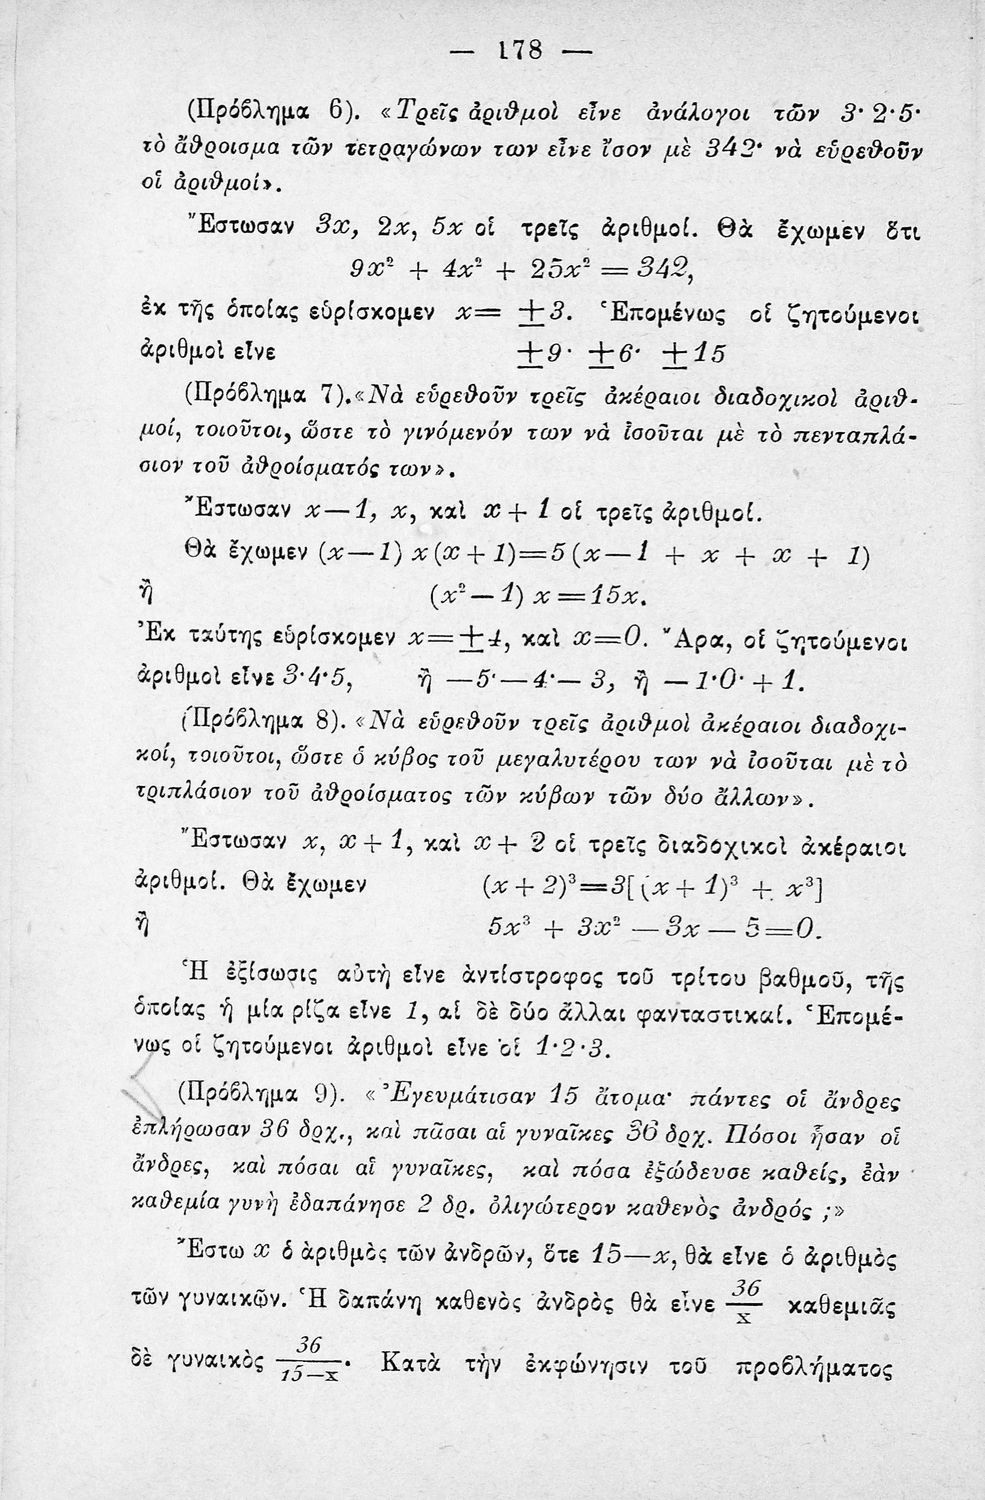 — 178 —
(Πρόβλημα 6). «Τρεῖς ἀριθμοὶ εἶνε ἀνάλογοι τῶν 3· 2·5·
τὸ ἄθροισμα τῶν τετραγώνων των εἶνε ἴσον μὲ 342· νὰ εὑρεθοῦν
οἱ ἀριθμοί».
Ἔστωσαν 3x, 2x, 5x οἱ τρεῖς ἀριθμοί. Θὰ ἔχωμεν ὅτι
9x² + 4x² + 25x² = 342,
ἐκ τῆς ὁποίας εὑρίσκομεν x= ±3. Ἑπομένως οἱ ζητούμενοι
ἀριθμοὶ εἶνε ±9· ±6· ±15
(Πρόβλημα 7).«Νὰ εὑρεθοῦν τρεῖς ἀκέραιοι διαδοχικοὶ ἀριθ-
μοί, τοιοῦτοι, ὥστε τὸ γινόμενόν των νὰ ἰσοῦται μὲ τὸ πενταπλά-
σιον τοῦ ἀθροίσματός των».
Ἔστωσαν x—1, x, καὶ x + 1 οἱ τρεῖς ἀριθμοί.
Θὰ ἔχωμεν (x—1) x (x + 1)=5 (x—1 + x + x + 1)
ἢ (x² — 1) x = 15x.
Ἐκ ταύτης εὑρίσκομεν x=±4, καὶ x=0. Ἄρα, οἱ ζητούμενοι
ἀριθμοὶ εἶνε 3·4·5, ἢ —5·—4·—3, ἢ —1·0·+1.
(Πρόβλημα 8). «Νὰ εὑρεθοῦν τρεῖς ἀριθμοὶ ἀκέραιοι διαδοχι-
κοί, τοιοῦτοι, ὥστε ὁ κύβος τοῦ μεγαλυτέρου των νὰ ἰσοῦται μὲ τὸ
τριπλάσιον τοῦ ἀθροίσματος τῶν κύβων τῶν δύο ἄλλων».
Ἔστωσαν x, x + 1, καὶ x + 2 οἱ τρεῖς διαδοχικοὶ ἀκέραιοι
ἀριθμοί. Θὰ ἔχωμεν (x + 2)³=3[(x + 1)³ + x³]
ἢ 5x³ + 3x² — 3x — 5=0.
Ἡ ἐξίσωσις αὐτὴ εἶνε ἀντίστροφος τοῦ τρίτου βαθμοῦ, τῆς
ὁποίας ἡ μία ρίζα εἶνε 1, αἱ δὲ δύο ἄλλαι φανταστικαί. Ἑπομέ-
νως οἱ ζητούμενοι ἀριθμοὶ εἶνε οἱ 1·2·3.
(Πρόβλημα 9). «Ἐγευμάτισαν 15 ἄτομα· πάντες οἱ ἄνδρες
ἐπλήρωσαν 36 δρχ., καὶ πᾶσαι αἱ γυναῖκες 36 δρχ. Πόσοι ἦσαν οἱ
ἄνδρες, καὶ πόσαι αἱ γυναῖκες, καὶ πόσα ἐξώδευσε καθείς, ἐὰν
καθεμία γυνὴ ἐδαπάνησε 2 δρ. ὀλιγώτερον καθενὸς ἀνδρός ;»
Ἔστω x ὁ ἀριθμὸς τῶν ἀνδρῶν, ὅτε 15—x, θὰ εἶνε ὁ ἀριθμὸς
τῶν γυναικῶν. Ἡ δαπάνη καθενὸς ἀνδρὸς θὰ εἶνε 36/x καθεμιᾶς
δὲ γυναικὸς 36/15—x. Κατὰ τὴν ἐκφώνησιν τοῦ προβλήματος